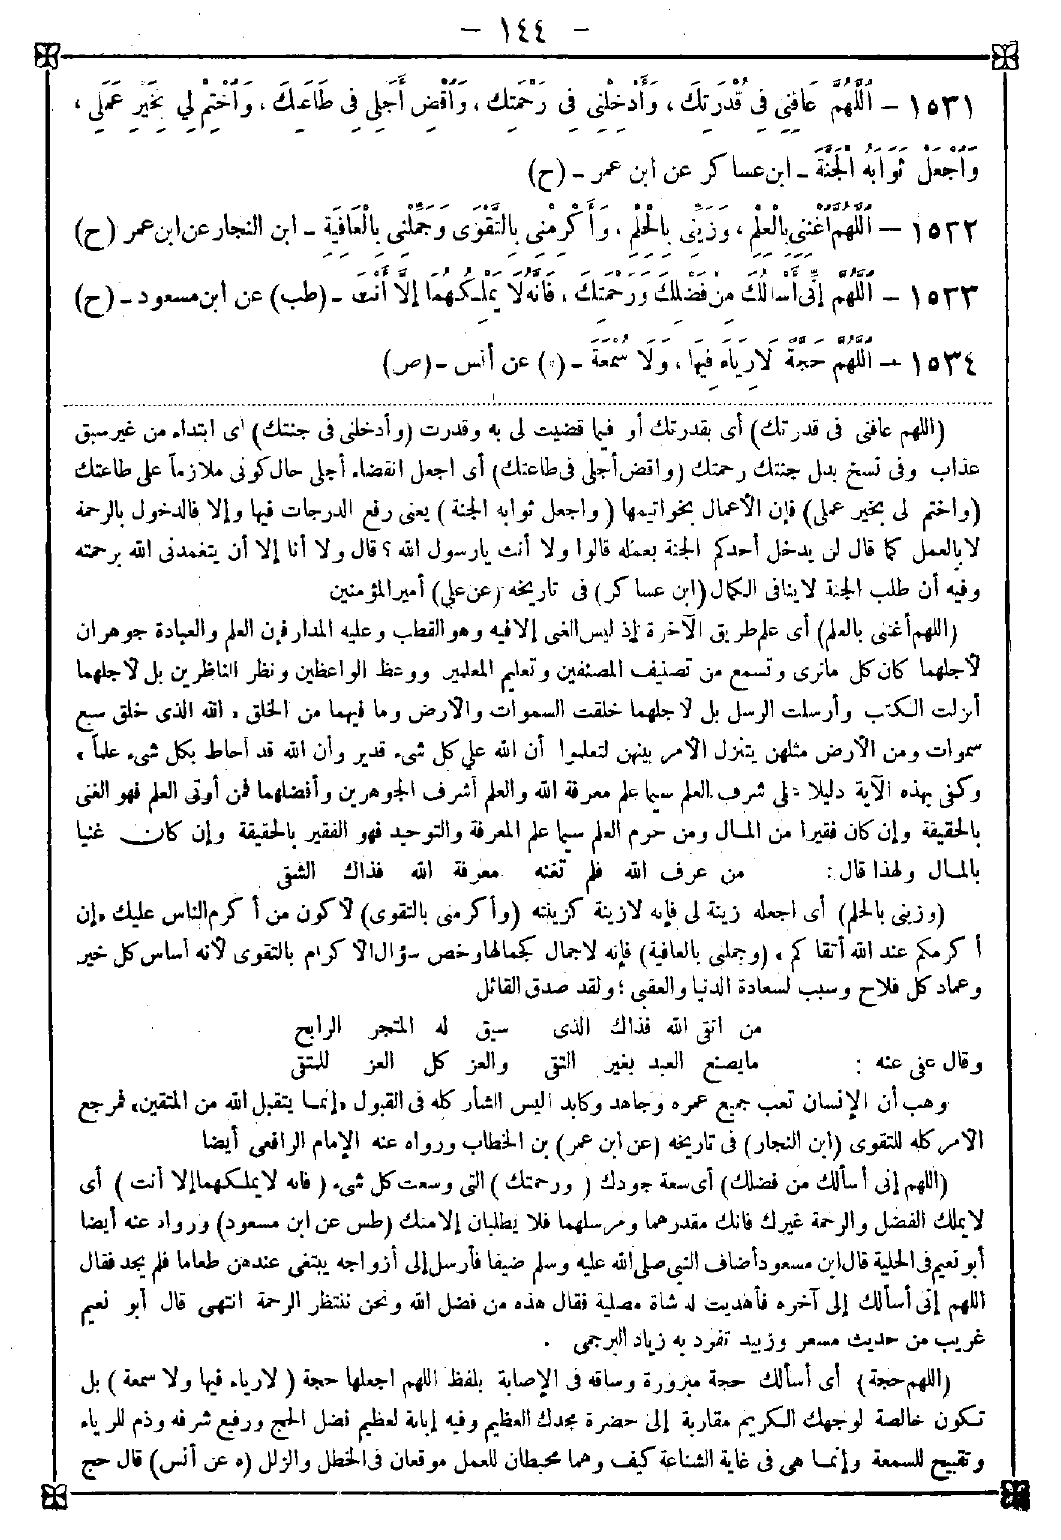 - ١٤٤ -
١٥٣١ - اَللّٰهُمَّ عَافِنِي فِي قُدْرَتِكَ، وَأَدْخِلْنِي فِي رَحْمَتِكَ، وَاقْضِ أَجَلِي فِي طَاعَتِكَ، وَاخْتِمْ لِي بِخَيْرِ عَمَلِي،
وَاجْعَلْ ثَوَابَهُ الْجَنَّةَ - ابن عساكر عن ابن عمر - (ح)
١٥٣٢ - اَللّٰهُمَّ أَغْنِنِي بِالْعِلْمِ، وَزَيِّنِّي بِالْحِلْمِ، وَأَكْرِمْنِي بِالتَّقْوَى وَجَمِّلْنِي بِالْعَافِيَةِ - ابن النجار عن ابن عمر (ح)
١٥٣٣ - اَللّٰهُمَّ إِنِّي أَسْأَلُكَ مِنْ فَضْلِكَ وَرَحْمَتِكَ، فَإِنَّهُ لَا يَمْلِكُهُمَا إِلَّا أَنْتَ - (طب) عن ابن مسعود - (ح)
١٥٣٤ - اَللّٰهُمَّ حَجَّةً لَا رِيَاءَ فِيهَا، وَلَا سُمْعَةَ - (ه) عن أنس - (ض)
(اللهم عافنى فى قدرتك) أى بقدرتك أو فيما قضيت لى به وقدرت (وأدخلنى فى جنتك) أى ابتداء من غير سبق
عذاب وفى نسخ بدل جنتك رحمتك (واقض أجلى فى طاعتك) أى اجعل انقضاء أجلى حال كونى ملازماً على طاعتك
(واختم لى بخير عملى) فإن الأعمال بخواتيمها (واجعل ثوابه الجنة) يعنى رفع الدرجات فيها وإلا فالدخول بالرحمة
لا بالعمل كما قال لن يدخل أحدكم الجنة بعمله قالوا ولا أنت يارسول الله؟ قال ولا أنا إلا أن يتغمدنى الله برحمته
وفيه أن طلب الجنة لاينافى الكمال (ابن عساكر) فى تاريخه (عن على) أمير المؤمنين
(اللهم أغننى بالعلم) أى علم طريق الآخرة إذ ليس الغنى إلا فيه وهو القطب وعليه المدار فإن العلم والعبادة جوهران
لأجلهما كان كل ماترى وتسمع من تصنيف المصنفين وتعليم المعلمين ووعظ الواعظين ونظر الناظرين بل لأجلهما
أنزلت الكتب وأرسلت الرسل بل لأجلهما خلقت السموات والأرض وما فيهما من الخلق «الله الذى خلق سبع
سموات ومن الأرض مثلهن يتنزل الأمر بينهن لتعلموا أن الله على كل شىء قدير وأن الله قد أحاط بكل شىء علماً»
وكفى بهذه الآية دليلا على شرف العلم سيما علم معرفة الله والعلم أشرف الجوهرين وأفضلهما فمن أوتى العلم فهو الغنى
بالحقيقة وإن كان فقيرا من المال ومن حرم العلم سيما علم المعرفة والتوحيد فهو الفقير بالحقيقة وإن كان غنيا
بالمال ولهذا قال: من عرف الله فلم تغنه معرفة الله فذاك الشقى
(وزينى بالحلم) أى اجعله زينة لى فإنه لازينة كزينته (وأكرمنى بالتقوى) لأكون من أكرم الناس عليك «إن
أكرمكم عند الله أتقاكم» (وجملنى بالعافية) فإنه لاجمال كجمالها وخص سؤال الإكرام بالتقوى لأنه أساس كل خير
وعماد كل فلاح وسبب لسعادة الدنيا والعقبى؛ ولقد صدق القائل
من اتقى الله فذاك الذى سيق له المتجر الرابح
وقال عنى عنه: مايصنع العبد بغير التقى والعز كل العز للمتقى
وهب أن الإنسان تعب جميع عمره وجاهد وكابد أليس الشأن كله فى القبول «إنما يتقبل الله من المتقين» فمرجع
الأمر كله للتقوى (ابن النجار) فى تاريخه (عن ابن عمر) بن الخطاب ورواه عنه الإمام الرافعى أيضا
(اللهم إنى أسألك من فضلك) أى سعة جودك (ورحمتك) التى وسعت كل شىء (فانه لايملكهما إلا أنت) أى
لايملك الفضل والرحمة غيرك فانك مقدرهما ومرسلهما فلا يطلبان إلا منك (طس عن ابن مسعود) ورواه عنه أيضا
أبو نعيم فى الحلية قال ابن مسعود أضاف النبى صلى الله عليه وسلم ضيفا فأرسل إلى أزواجه يبتغى عندهن طعاما فلم يجد فقال
اللهم إنى أسألك إلى آخره فأهديت له شاة مصلية فقال هذه من فضل الله ونحن ننتظر الرحمة انتهى قال أبو نعيم
غريب من حديث مسعر وزبيد تفرد به زياد البرجمى .
(اللهم حجة) أى أسألك حجة مبرورة وساقه فى الإصابة بلفظ اللهم اجعلها حجة (لارياء فيها ولا سمعة) بل
تكون خالصة لوجهك الكريم مقاربة إلى حضرة مجدك العظيم وفيه إبانة لعظيم فضل الحج ورفيع شرفه وذم للرياء
وتقبيح للسمعة وإنما هى فى غاية الشناعة كيف وهما محبطان للعمل موقعان فى الخطل والزلل (ه عن أنس) قال حج